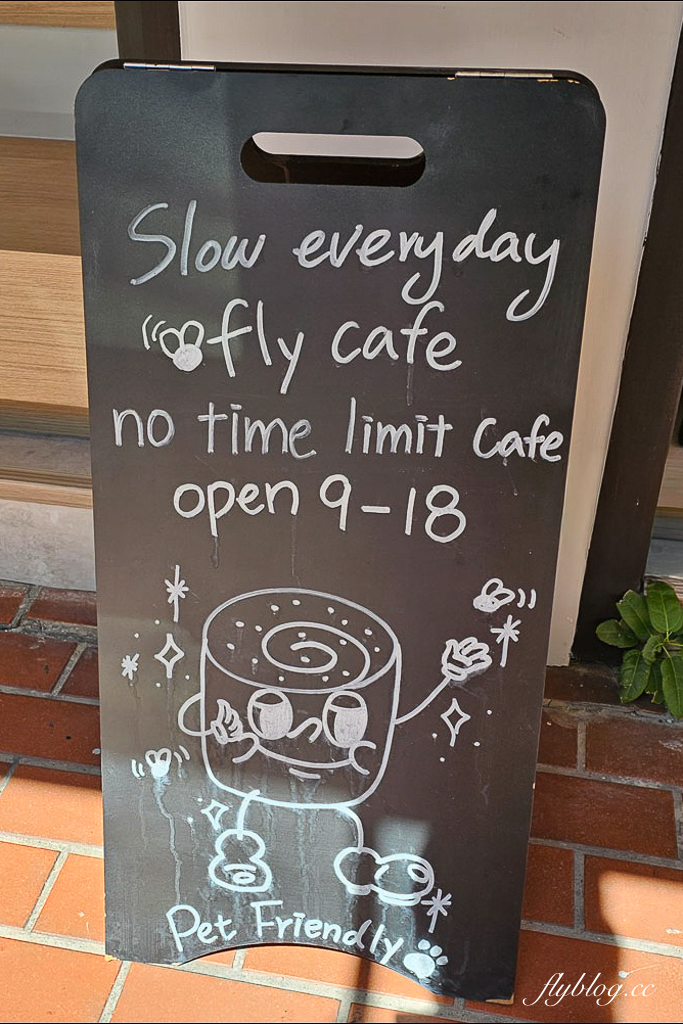 Slow everyday
fly cafe
no time limit cafe
open 9-18
Pet Friendly
flyblog.cc